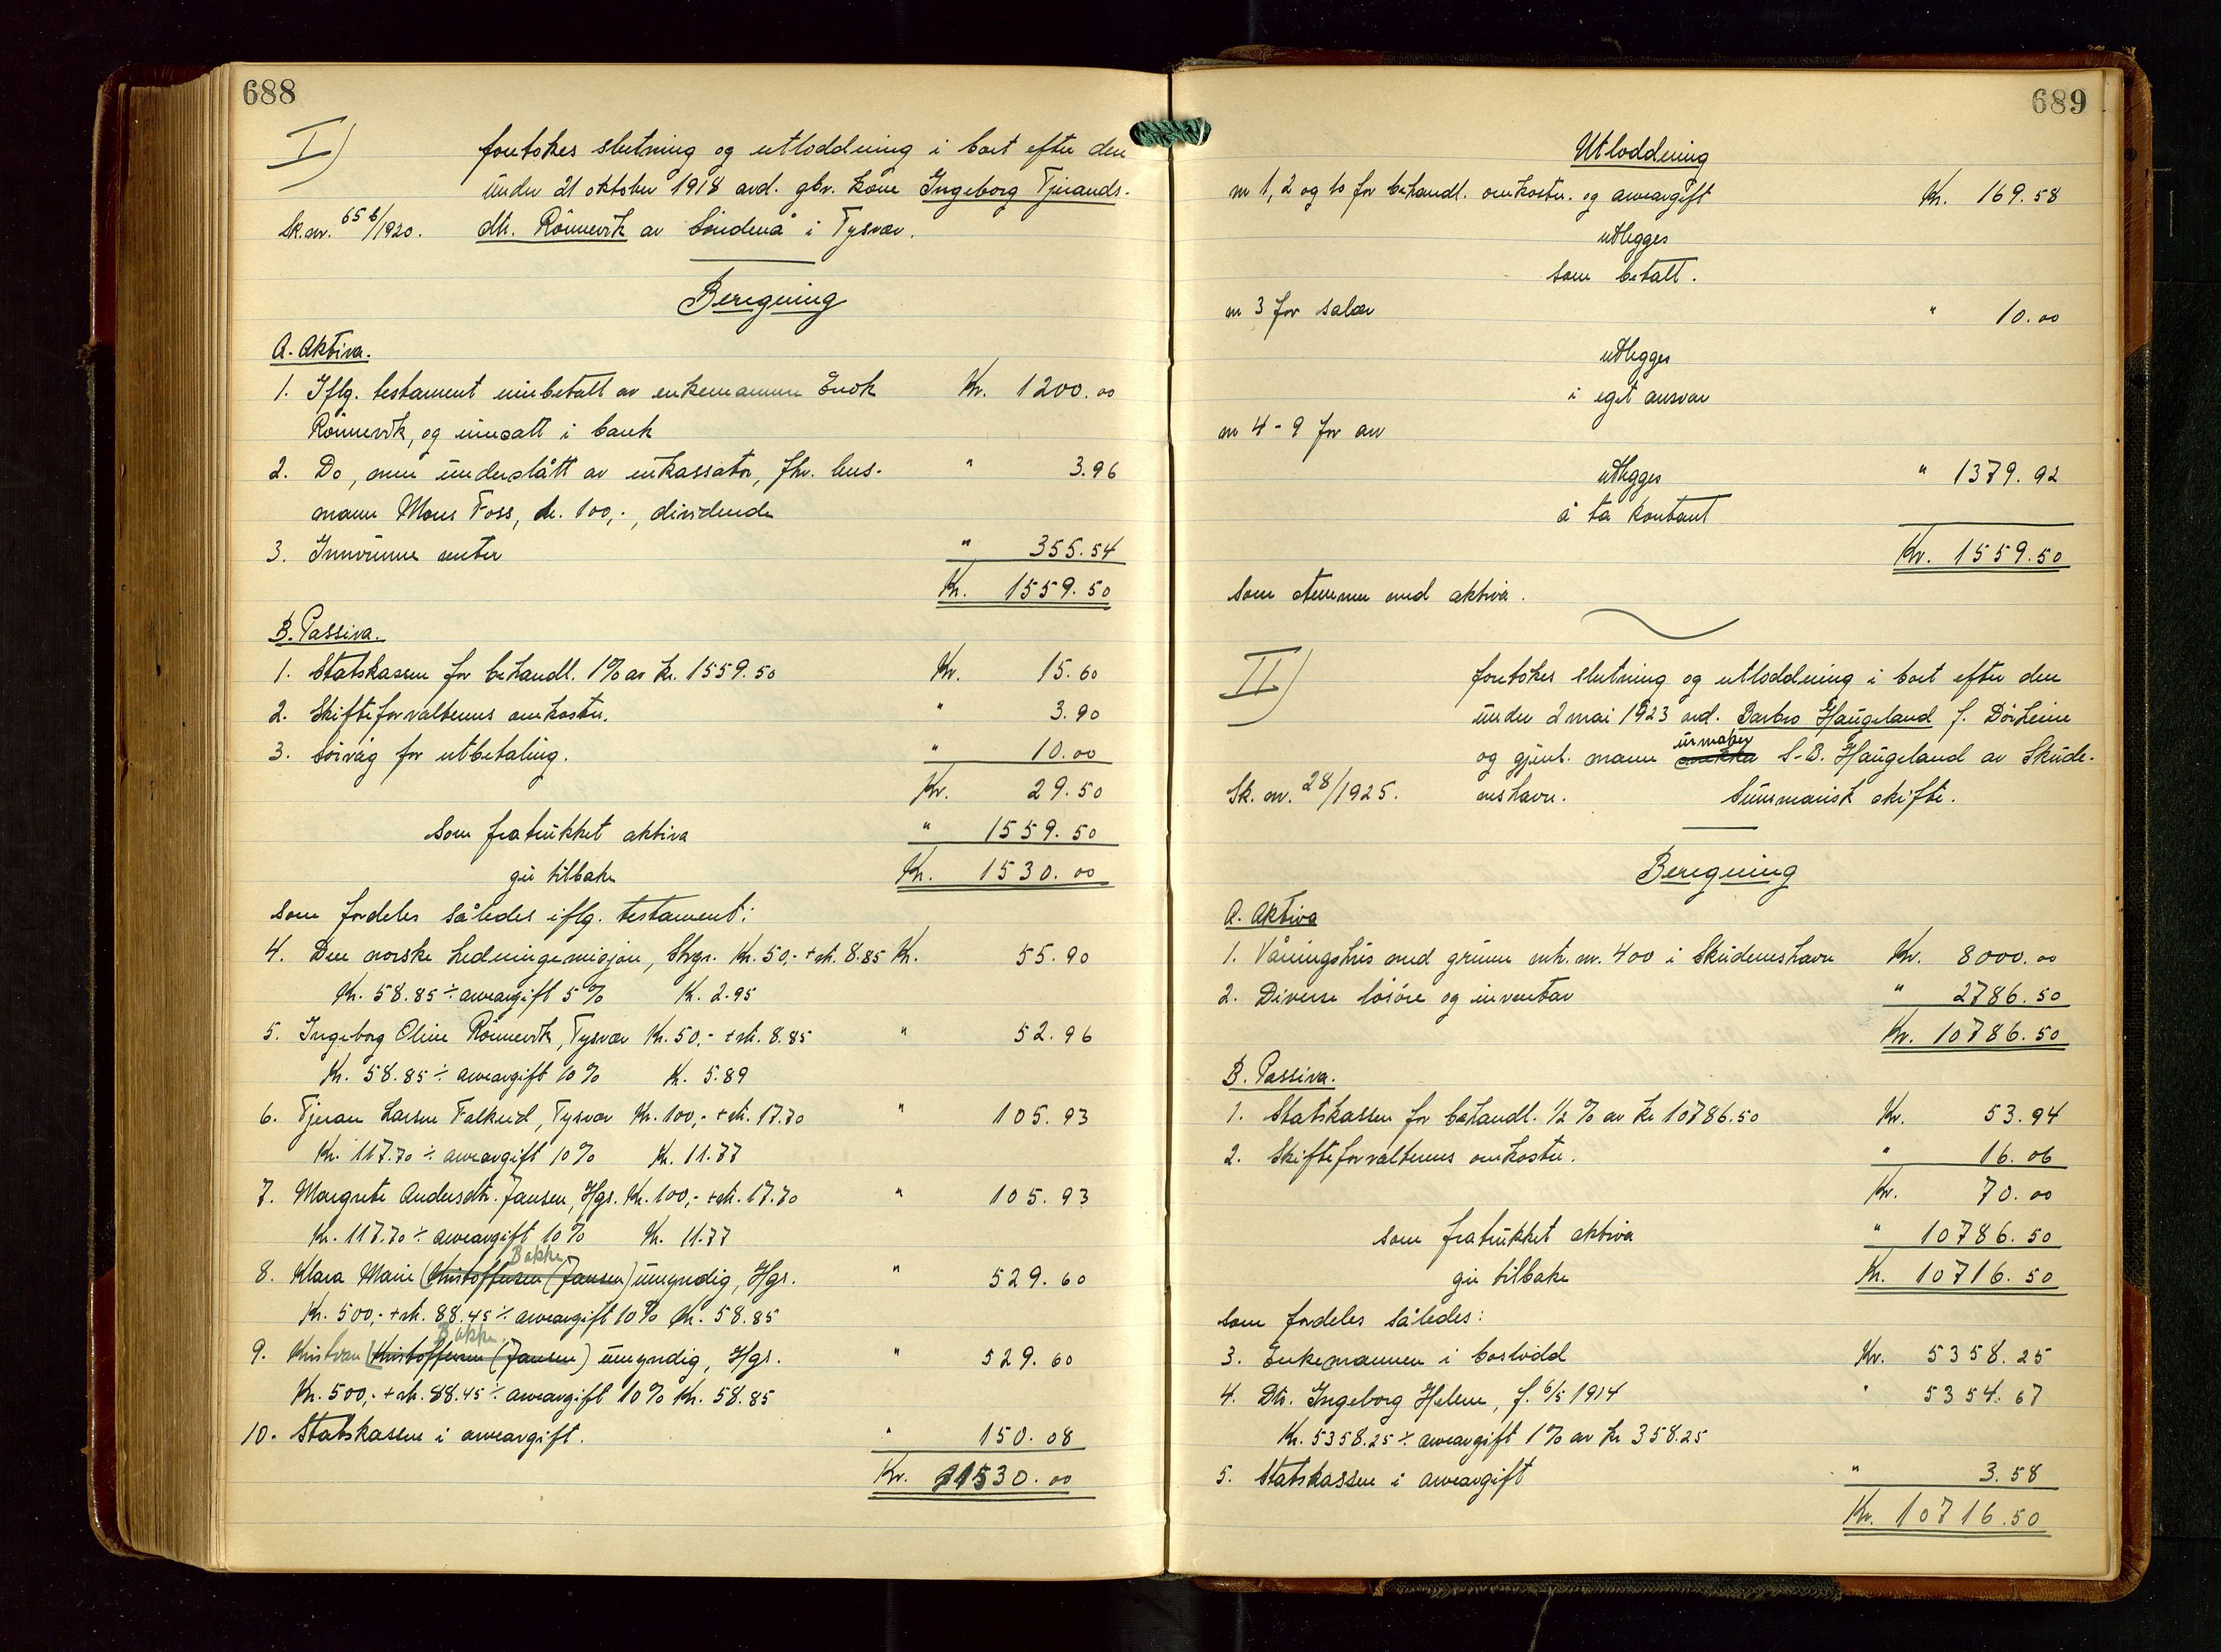 688
I)
foretokes slutning og utloddning i boet efter den
under 21 oktober 1918 avd. gbr. kone Ingeborg Tjerands-
Sk.nr. 656/1920. dtr. Rönnevik av Söndenå i Tysvær.
Beregning
A. Aktiva.
1. Iflg. testament innbetalt av enkemannen Enok Kr. 1200.00
Rönnevik, og innsatt i bank
2. Do, men underslått av inkassator, fhv. lens- " 3.96
mann Mons Foss, kr. 100,-, dividende
3. Innvunne renter " 355.54
Kr. 1559.50
B. Passiva.
1. Statskassen for behandl. 1% av kr. 1559.50 Kr. 15.60
2. Skifteforvalterens omkostn. " 3.90
3. Sörvåg for utbetaling. " 10.00
Kr. 29.50
som fratrukket aktiva " 1559.50
gir tilbake Kr. 1530.00
som fordeles således iflg. testament:
4. Den norske hedningemisjon, Stvgr. Kr. 50,- + rtr. 8.85 Kr. 55.90
Kr. 58.85 ÷ arveavgift 5% K. 2.95
5. Ingeborg Oline Rönnevik, Tysvær Kr. 50,- + rtr. 8.85 " 52.96
Kr. 58.85 ÷ arveavgift 10% K. 5.89
6. Tjeran Larsen Falkeid, Tysvær Kr. 100,- + rtr. 17.70 " 105.93
Kr. 117.70 ÷ arveavgift 10% K. 11.77
7. Margrete Andersdtr. Jansen, Hgs. Kr. 100,- + rtr. 17.70 " 105.93
Kr. 117.70 ÷ arveavgift 10% Kr. 11.77
Bakke
8. Klara Marie (Kristoffersen (Jansen) umyndig, Hgs. " 529.60
Kr. 500,- + rtr. 88.45 ÷ arveavgift 10% Kr. 58.85
Bakke
9. Kristian (Kristoffersen (Jansen) umyndig, Hgs. " 529.60
Kr. 500,- + rtr. 88.45 ÷ arveavgift 10% Kr. 58.85
10. Statskassen i arveavgift. " 150.08
Kr. 1530.00
689
Utloddning
nr 1, 2 og 10 for behandl. omkostn. og arveavgift Kr. 169.58
utlegges
som betalt.
nr 3 for salær " 10.00
utlegges
i eget ansvar
nr 4 - 9 for arv
utlegges " 1379.92
å ta kontant
Kr. 1559.50
som stemmer med aktiva.
II)
foretokes slutning og utloddning i boet efter den
under 2 mai 1923 avd. Barbro Haugeland f. Dörheim
urmaker
og gjenl. mann S. B. Haugeland av Skude-
Sk. nr. 28/1925. neshavn. Summarisk skifte.
Beregning
A. Aktiva
1. Våningshus med grunn mtr. nr. 400 i Skudeneshavn Kr. 8000.00
2. Diverse lösöre og inventar " 2786.50
Kr. 10786.50
B. Passiva.
1. Statskassen for behandl. 1/2 % av kr 10786.50 Kr. 53.94
2. Skifteforvalterens omkostn. " 16.06
Kr. 70.00
som fratrukket aktiva " 10786.50
gir tilbake Kr. 10716.50
som fordeles således:
3. Enkemannen i boslodd Kr. 5358.25
4. Dtr. Ingeborg Helene, f. 6/5 1914 " 5354.67
Kr. 5358.25 ÷ arveavgift 1% av kr 358.25
5. Statskassen i arveavgift " 3.58
Kr. 10716.50